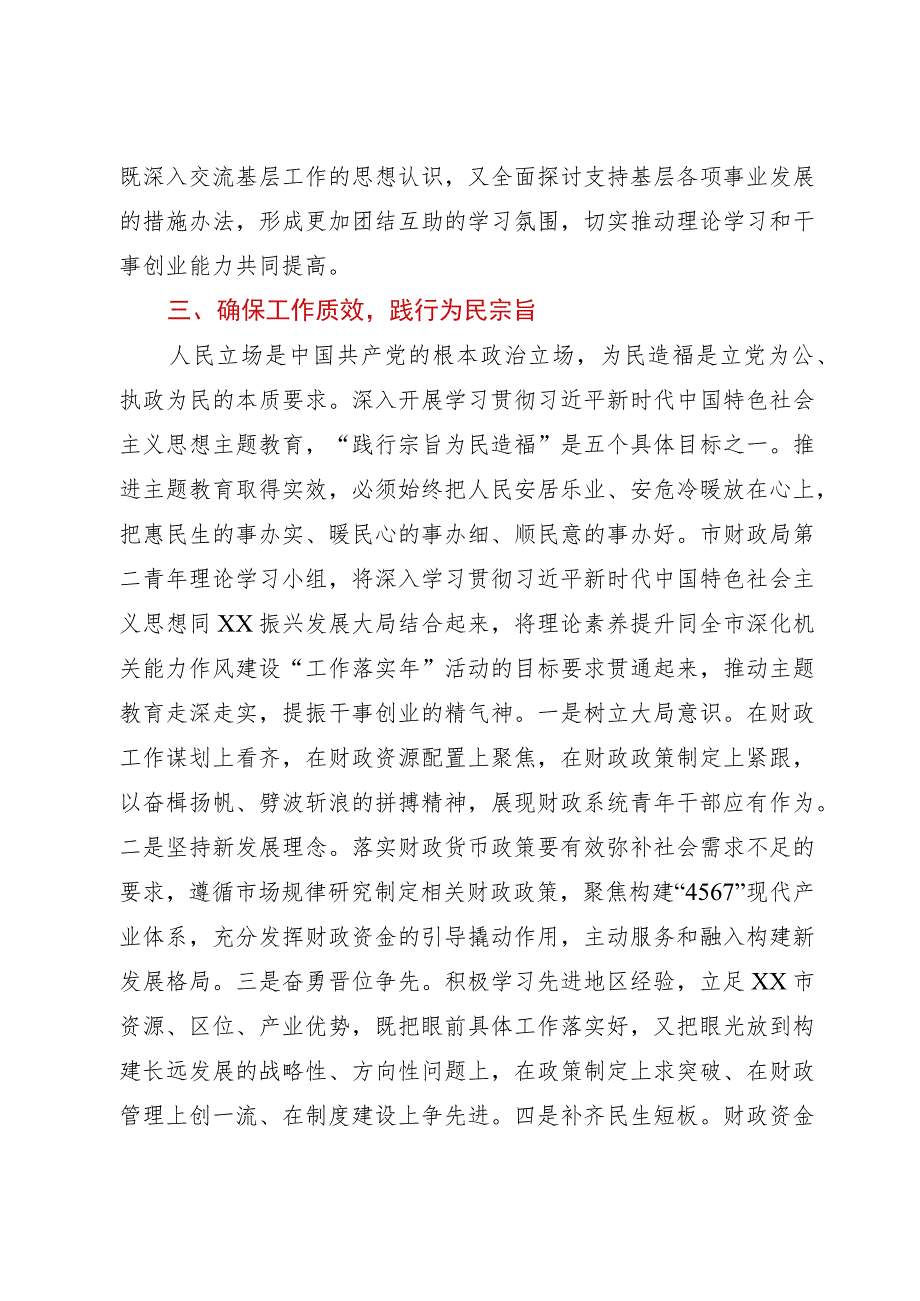 既深入交流基层工作的思想认识，又全面探讨支持基层各项事业发展
的措施办法，形成更加团结互助的学习氛围，切实推动理论学习和干
事创业能力共同提高。
三、确保工作质效，践行为民宗旨
人民立场是中国共产党的根本政治立场，为民造福是立党为公、
执政为民的本质要求。深入开展学习贯彻习近平新时代中国特色社会
主义思想主题教育，“践行宗旨为民造福”是五个具体目标之一。推
进主题教育取得实效，必须始终把人民安居乐业、安危冷暖放在心上，
把惠民生的事办实、暖民心的事办细、顺民意的事办好。市财政局第
二青年理论学习小组，将深入学习贯彻习近平新时代中国特色社会主
义思想同XX振兴发展大局结合起来，将理论素养提升同全市深化机
关能力作风建设“工作落实年”活动的目标要求贯通起来，推动主题
教育走深走实，提振干事创业的精气神。一是树立大局意识。在财政
工作谋划上看齐，在财政资源配置上聚焦，在财政政策制定上紧跟，
以奋楫扬帆、劈波斩浪的拼搏精神，展现财政系统青年干部应有作为。
二是坚持新发展理念。落实财政货币政策要有效弥补社会需求不足的
要求，遵循市场规律研究制定相关财政政策，聚焦构建“4567”现代产
业体系，充分发挥财政资金的引导撬动作用，主动服务和融入构建新
发展格局。三是奋勇晋位争先。积极学习先进地区经验，立足XX市
资源、区位、产业优势，既把眼前具体工作落实好，又把眼光放到构
建长远发展的战略性、方向性问题上，在政策制定上求突破、在财政
管理上创一流、在制度建设上争先进。四是补齐民生短板。财政资金